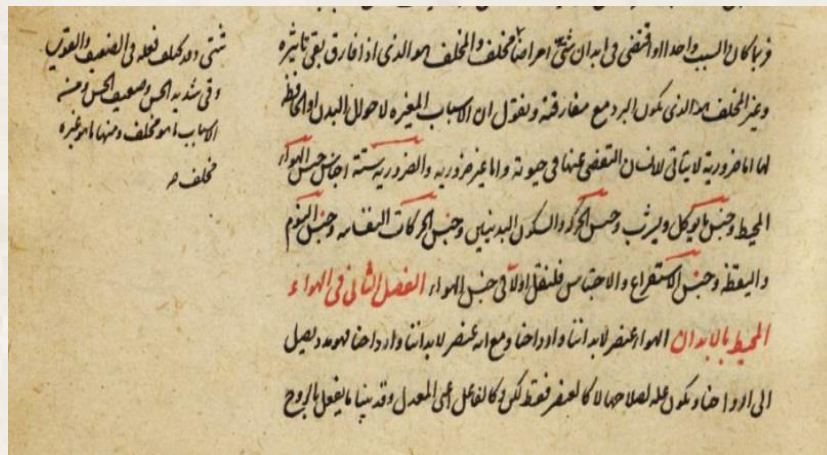 فربما كان السبب واحدا او اقتضى فى ابدان شتى امراضا مخلف والمخلف هو الذى اذا فارق بقى تاثيره
وغير المخلف هو الذى يكون البرد مع مفارقته ونقول ان الاسباب المغيره لاحوال البدن او الحافظة
لها اما ضرورية لا يتاتى للانسان التفصى عنها فى حيوته واما غير ضروريه والضروريه ستة اجناس جنس الهواء
المحيط وجنس ما يوكل ويشرب وجنس الحركه والسكون البدنيين وجنس الحركات النفسانيه وجنس النوم
واليقظه وجنس الاستفراغ والاحتباس فلنقل اولا فى جنس الهواء الفصل الثانى فى الهواء
المحيط بالابدان الهواء عنصر لابداننا وارواحنا ومع انه عنصر لابداننا وارواحنا فهو مدد يصل
الى ارواحنا ويكون عله لصلاحها لا كالعنصر فقط لكن وكالفاعل اعنى المعدل وقد بينا ما يفعل بالروح
شتى وقد يختلف فعله فى الضعيف والقوى
وفى شديد الحس وضعيف الحس ومنه
الاسباب ما هو مخلف ومنها ما هو غيره
مخلف صح